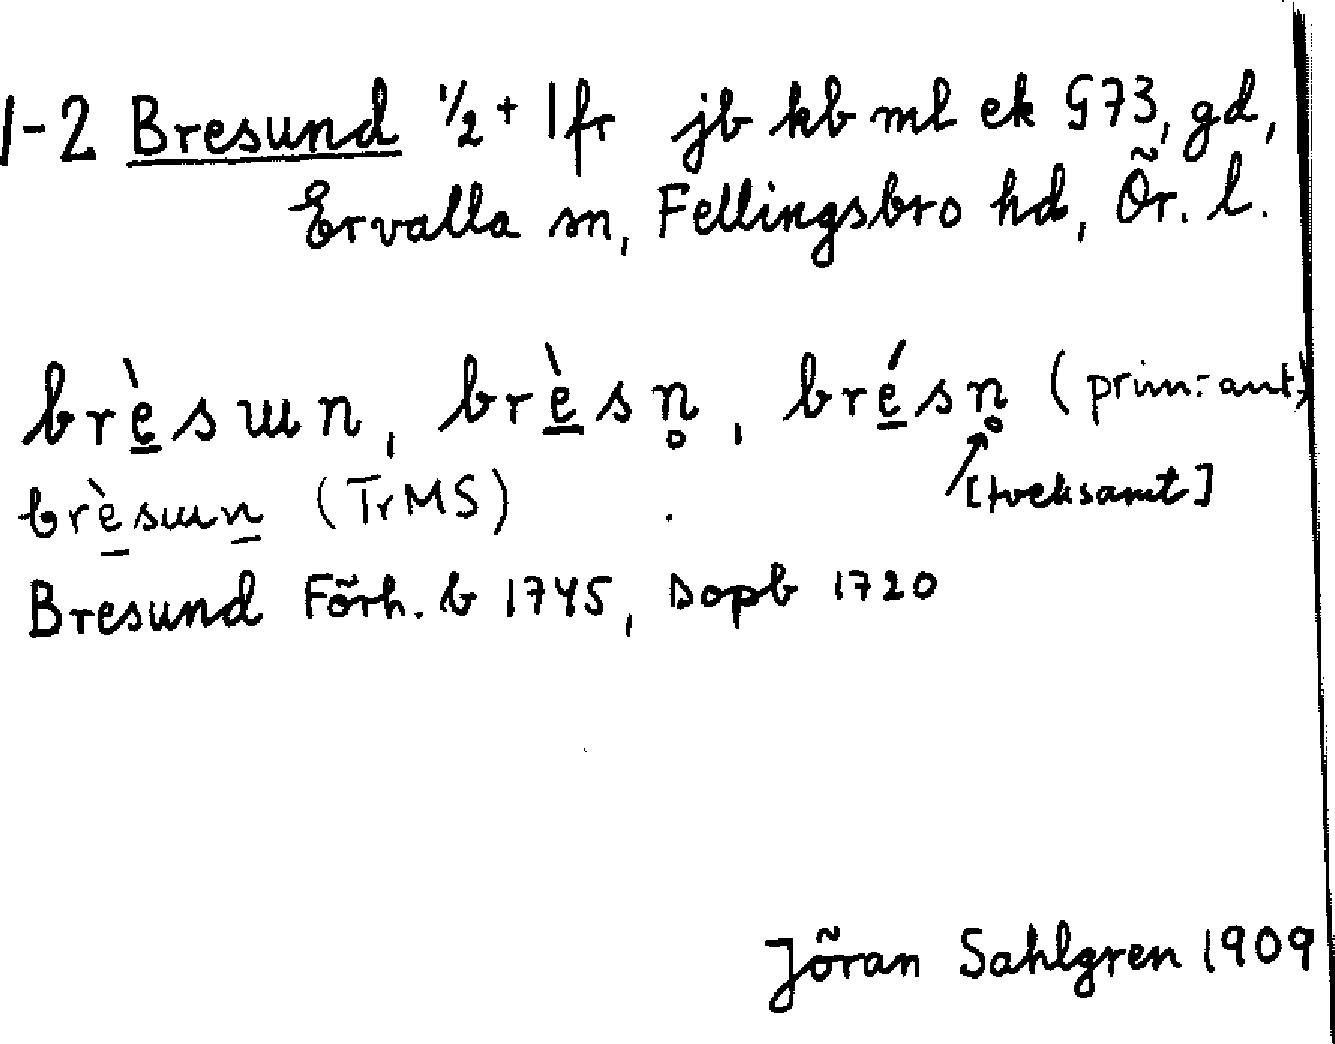 1-2 Bresund ½ + 1 fr jb kb ml ek G73, gd,
Ervalla sn, Fellingsbro hd, Ör. l.
brè̲sɯn, brè̲sn̥, bré̲sn̥ (prim.-ant)
[tveksamt]
brè̲sɯn̲ (Tr MS)
Bresund Förh. b 1745, Dopb 1720
Jöran Sahlgren 1909